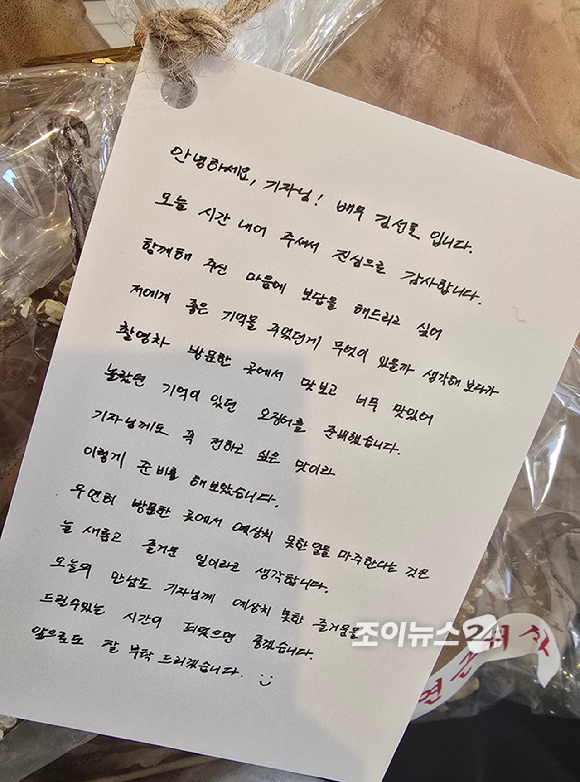 안녕하세요, 기자님! 배우 김선호 입니다.
오늘 시간 내어 주셔서 진심으로 감사합니다.
함께해 주신 마음에 보답을 해드리고 싶어
저에게 좋은 기억을 주었던게 무엇이 있을까 생각해 보다가
촬영차 방문한 곳에서 맛보고 너무 맛있어
놀랐던 기억이 있던 오징어를 준비했습니다.
기자님께도 꼭 전하고 싶은 맛이라
이렇게 준비를 해보았습니다.
우연히 방문한 곳에서 예상치 못한 일을 마주한다는 것은
늘 새롭고 즐거운 일이라고 생각합니다.
오늘의 만남도 기자님께 예상치 못한 즐거움을
드릴수있는 시간이 되었으면 좋겠습니다.
앞으로도 잘 부탁 드리겠습니다. :)
조이뉴스24